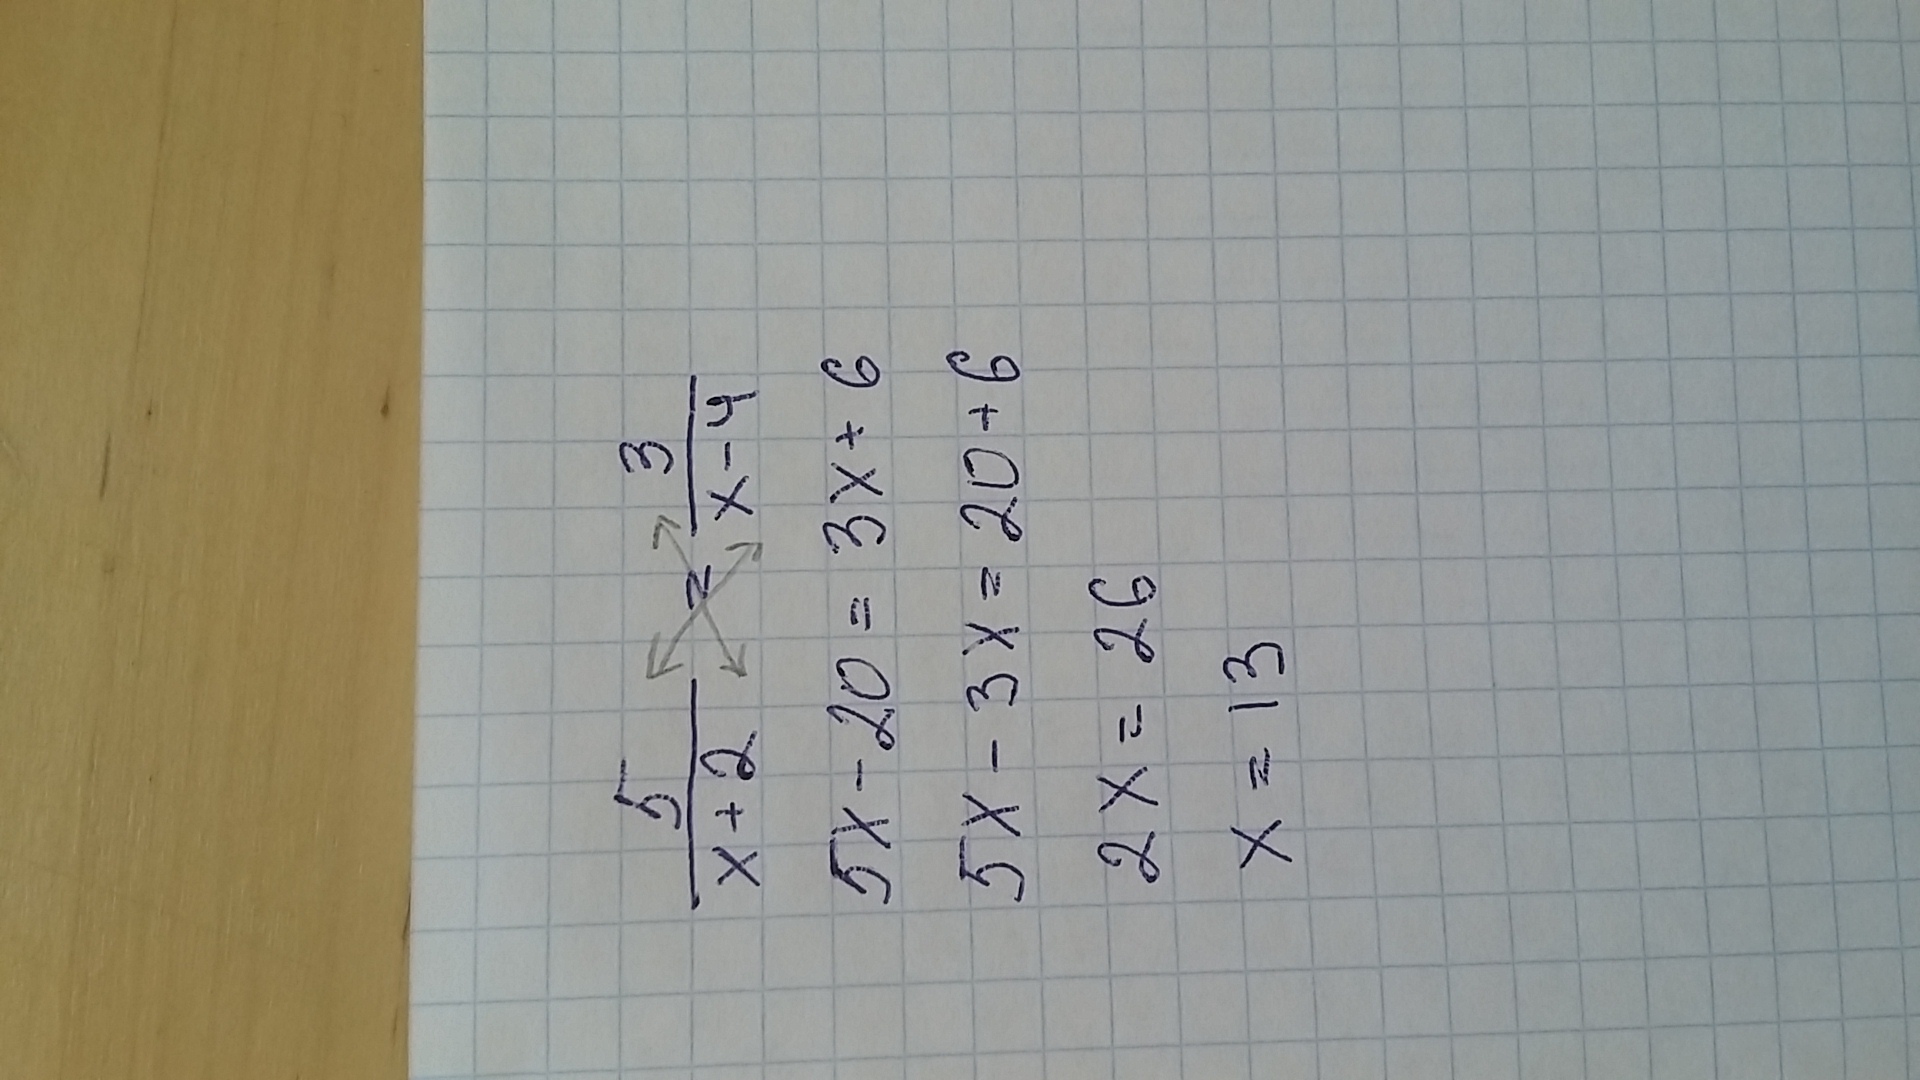 5/(x+2) = 3/(x-4)
5x - 20 = 3x + 6
5x - 3x = 20 + 6
2x = 26
x = 13